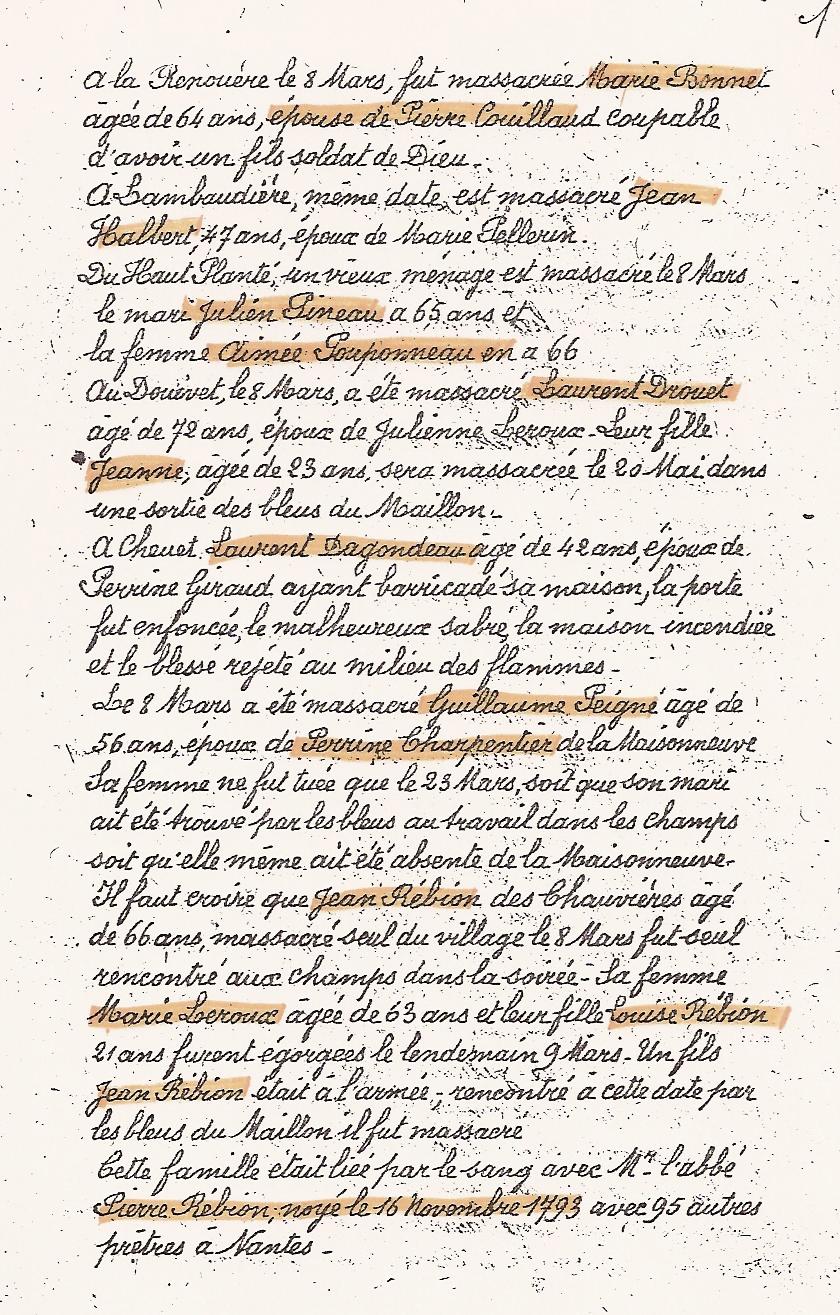 A la Renouère le 8 Mars, fut massacrée Marie Bonnet
âgée de 64 ans, épouse de Pierre Couillaud coupable
d'avoir un fils soldat de Dieu.
A Lambaudière, même date, est massacré Jean
Halbert, 47 ans, époux de Marie Pellerin.
Du Haut Planté, un vieux ménage est massacré le 8 Mars
le mari Julien Pineau a 65 ans et
la femme Aimée Pouponneau en a 66
Au Douévet, le 8 Mars, a été massacré Laurent Drouet
âgé de 72 ans, époux de Julienne Leroux - Leur fille
Jeanne, âgée de 23 ans, sera massacrée le 20 Mai dans
une sortie des bleus du Maillon.
A Chevet, Laurent Dagondeau âgé de 42 ans, époux de
Perrine Giraud ayant barricadé sa maison, la porte
fut enfoncée, le malheureux sabré, la maison incendiée
et le blessé rejeté au milieu des flammes -
Le 8 Mars a été massacré Guillaume Peigné âgé de
56 ans, époux de Perrine Charpentier de la Maisonneuve
Sa femme ne fut tuée que le 23 Mars, soit que son mari
ait été trouvé par les bleus au travail dans les champs
soit qu'elle même ait été absente de la Maisonneuve.
Il faut croire que Jean Rébion des Chauvières âgé
de 66 ans, massacré seul du village le 8 Mars fut seul
rencontré aux champs dans la soirée - Sa femme
Marie Leroux âgée de 63 ans et leur fille Louise Rébion
21 ans furent égorgées le lendemain 9 Mars - Un fils
Jean Rébion était à l'armée - rencontré à cette date par
les bleus du Maillon il fut massacré
Cette famille était liée par le sang avec Mr l'abbé
Pierre Rébion, noyé le 16 Novembre 1793 avec 95 autres
prêtres à Nantes -